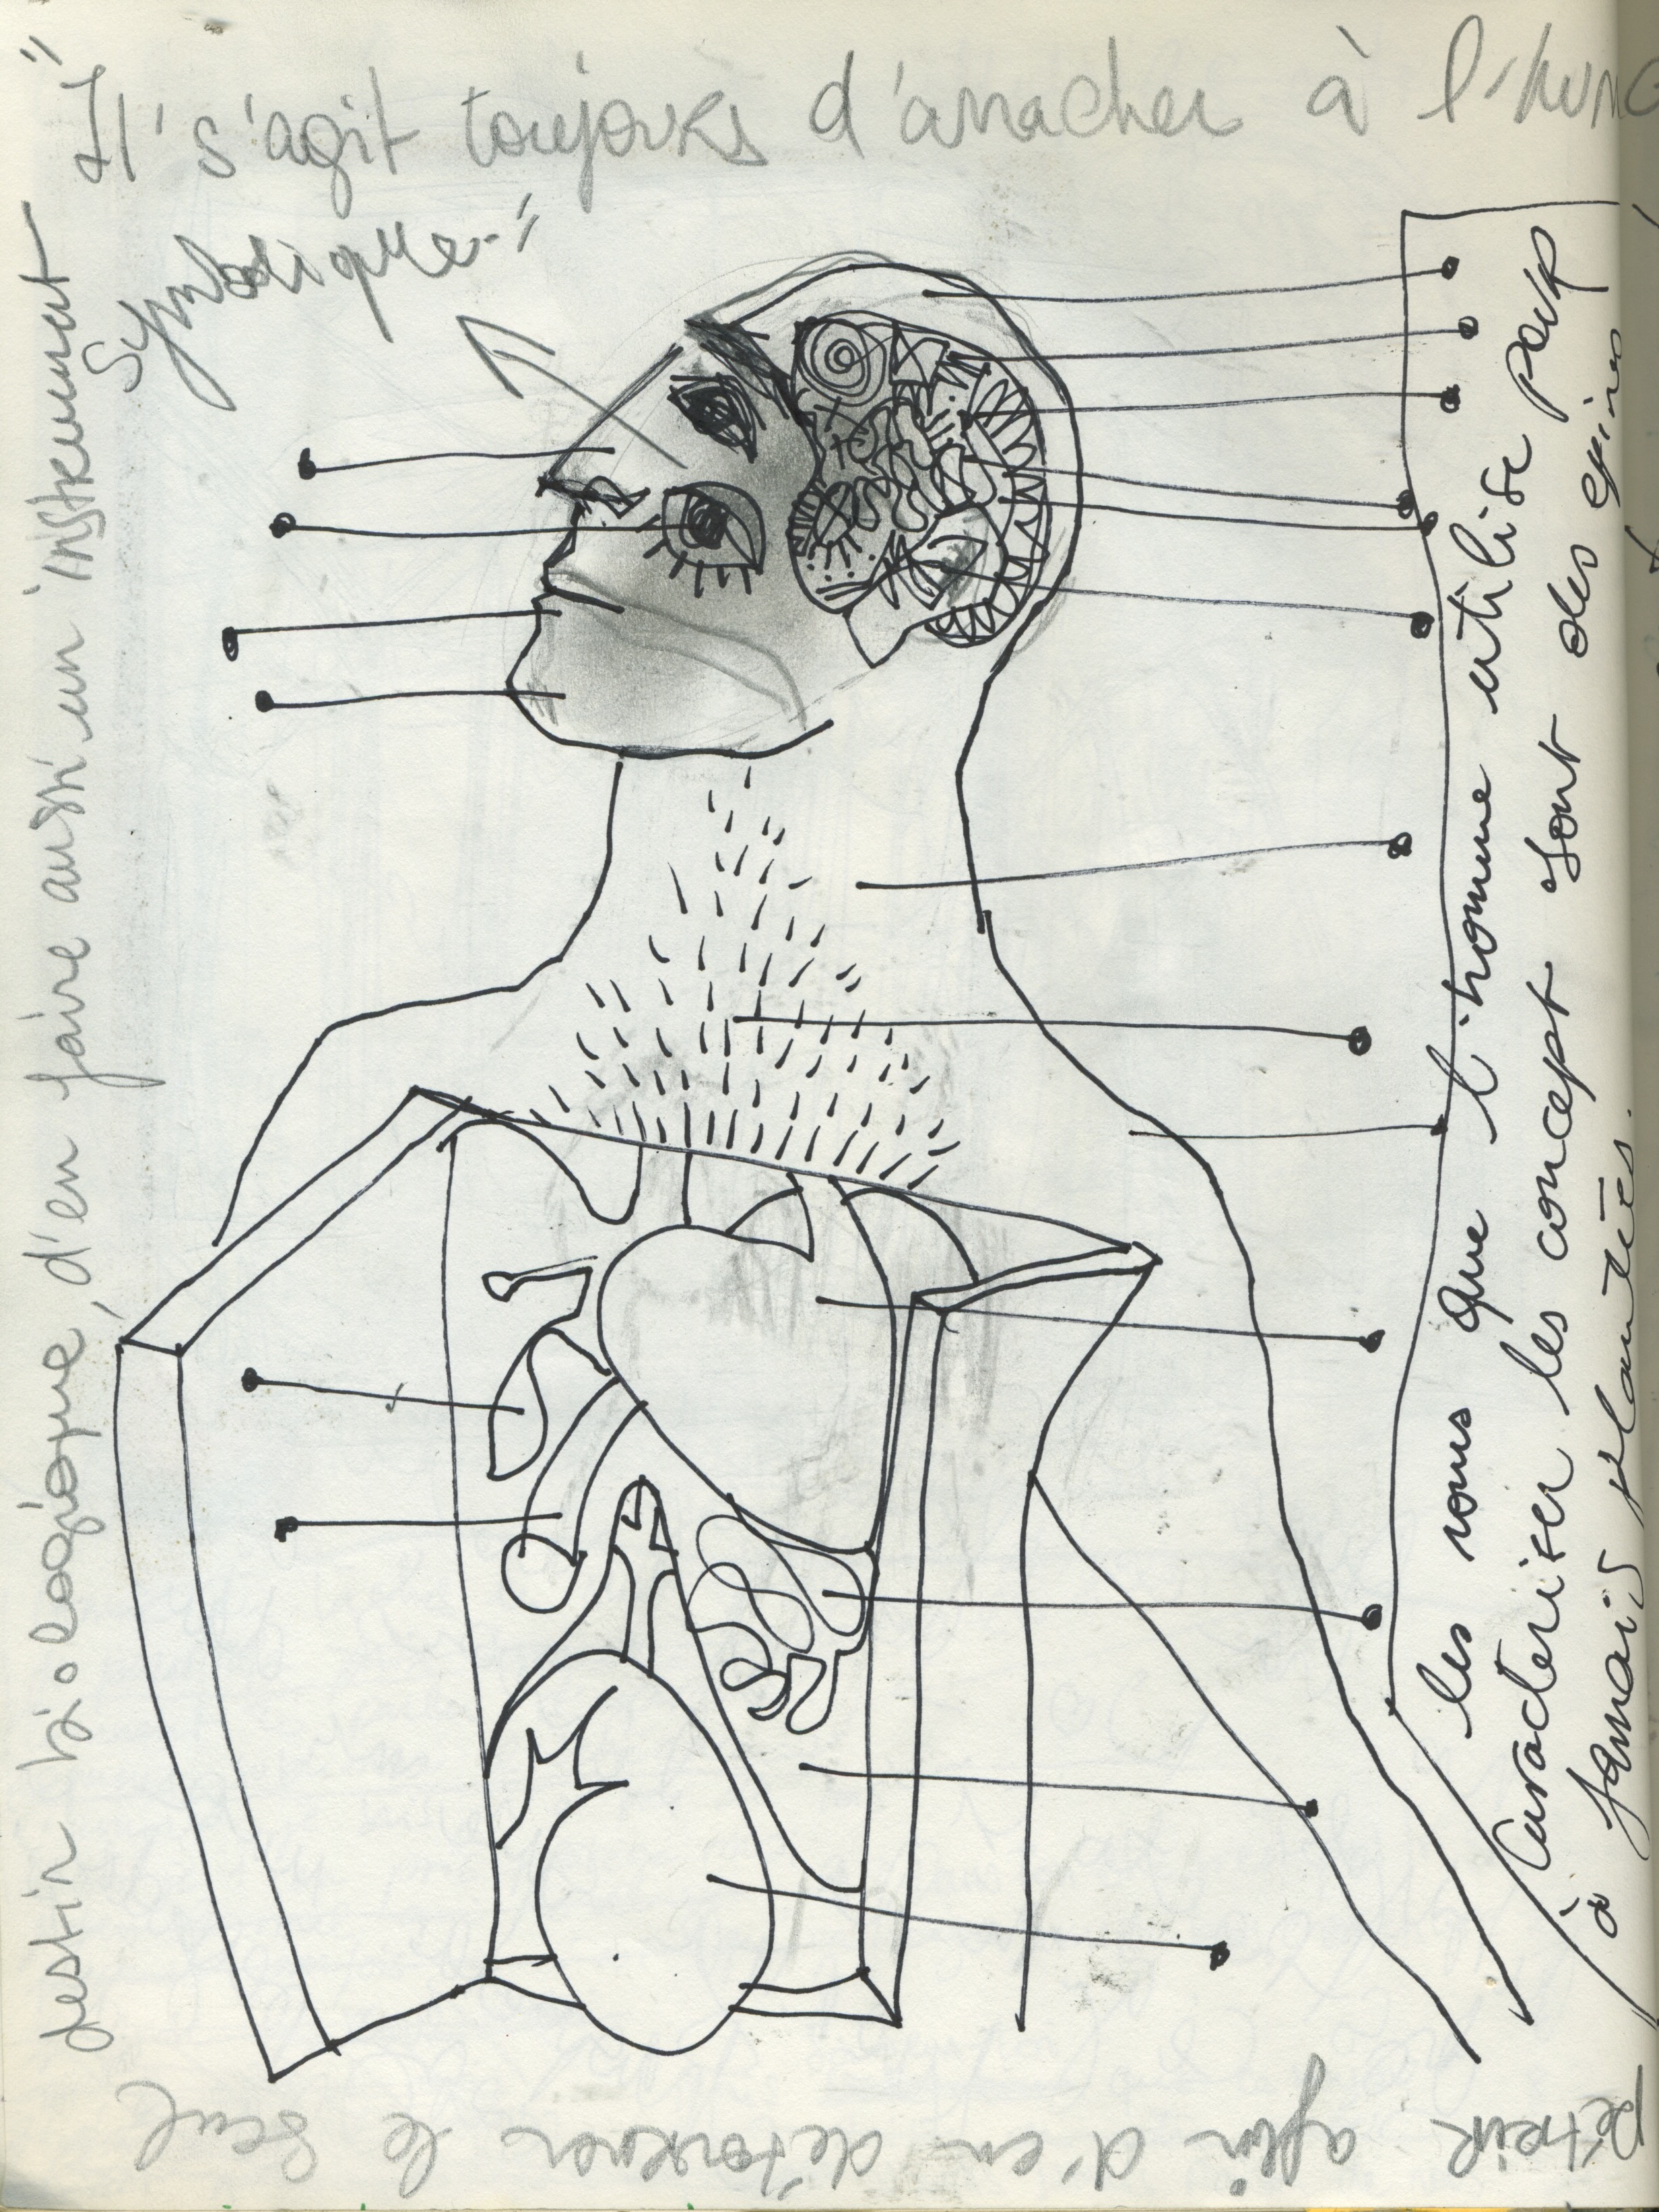 "Il s'agit toujours d'arracher à l'huma
pétrir afin d'en détourner le seul
destin biologique, d'en faire aussi un instrument
symbolique."
les noms que l'homme utilise pour
Caracteriser les concept sont des epines
à jamais plantées.